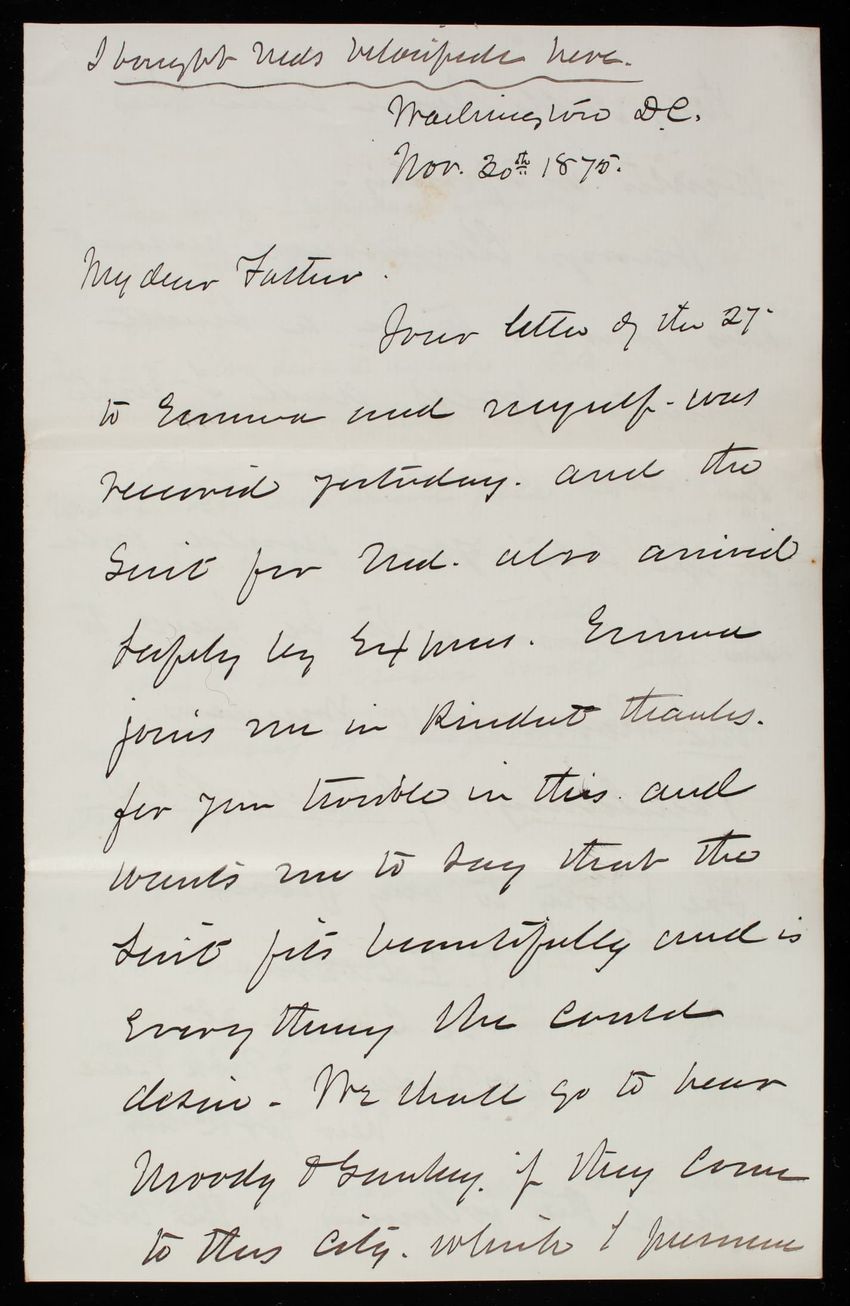 I bought Neds velocipede here.
Washington D.C.
Nov. 30th 1875.
My dear Father.
Your letter of the 27-
to Emma and myself - was
received yesterday. and the
Suit for Ned. also arrived
safely by Express. Emma
joins me in kindest thanks.
for your trouble in this. and
wants me to say that the
suit fits beautifully and is
Everything she could
desire - We shall go to hear
Moody & Sankey. if they come
to this City. which I presume